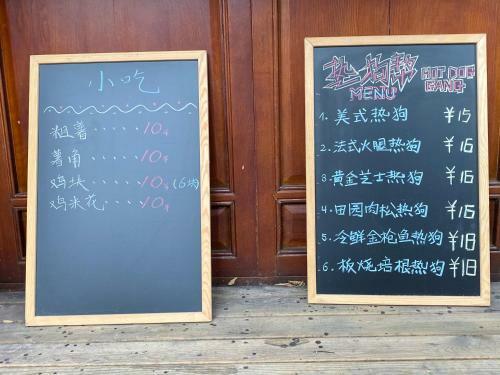 小吃
粗薯·····10元
薯角·····10元
鸡块·····10元(6块
鸡米花····10元
垫狗帮 HOT DOG GANG
MENU
1. 美式热狗 ¥15
2. 法式火腿热狗 ¥16
3. 黄金芝士热狗 ¥16
4. 田园肉松热狗 ¥16
5. 冷鲜金枪鱼热狗 ¥18
6. 板烧培根热狗 ¥18